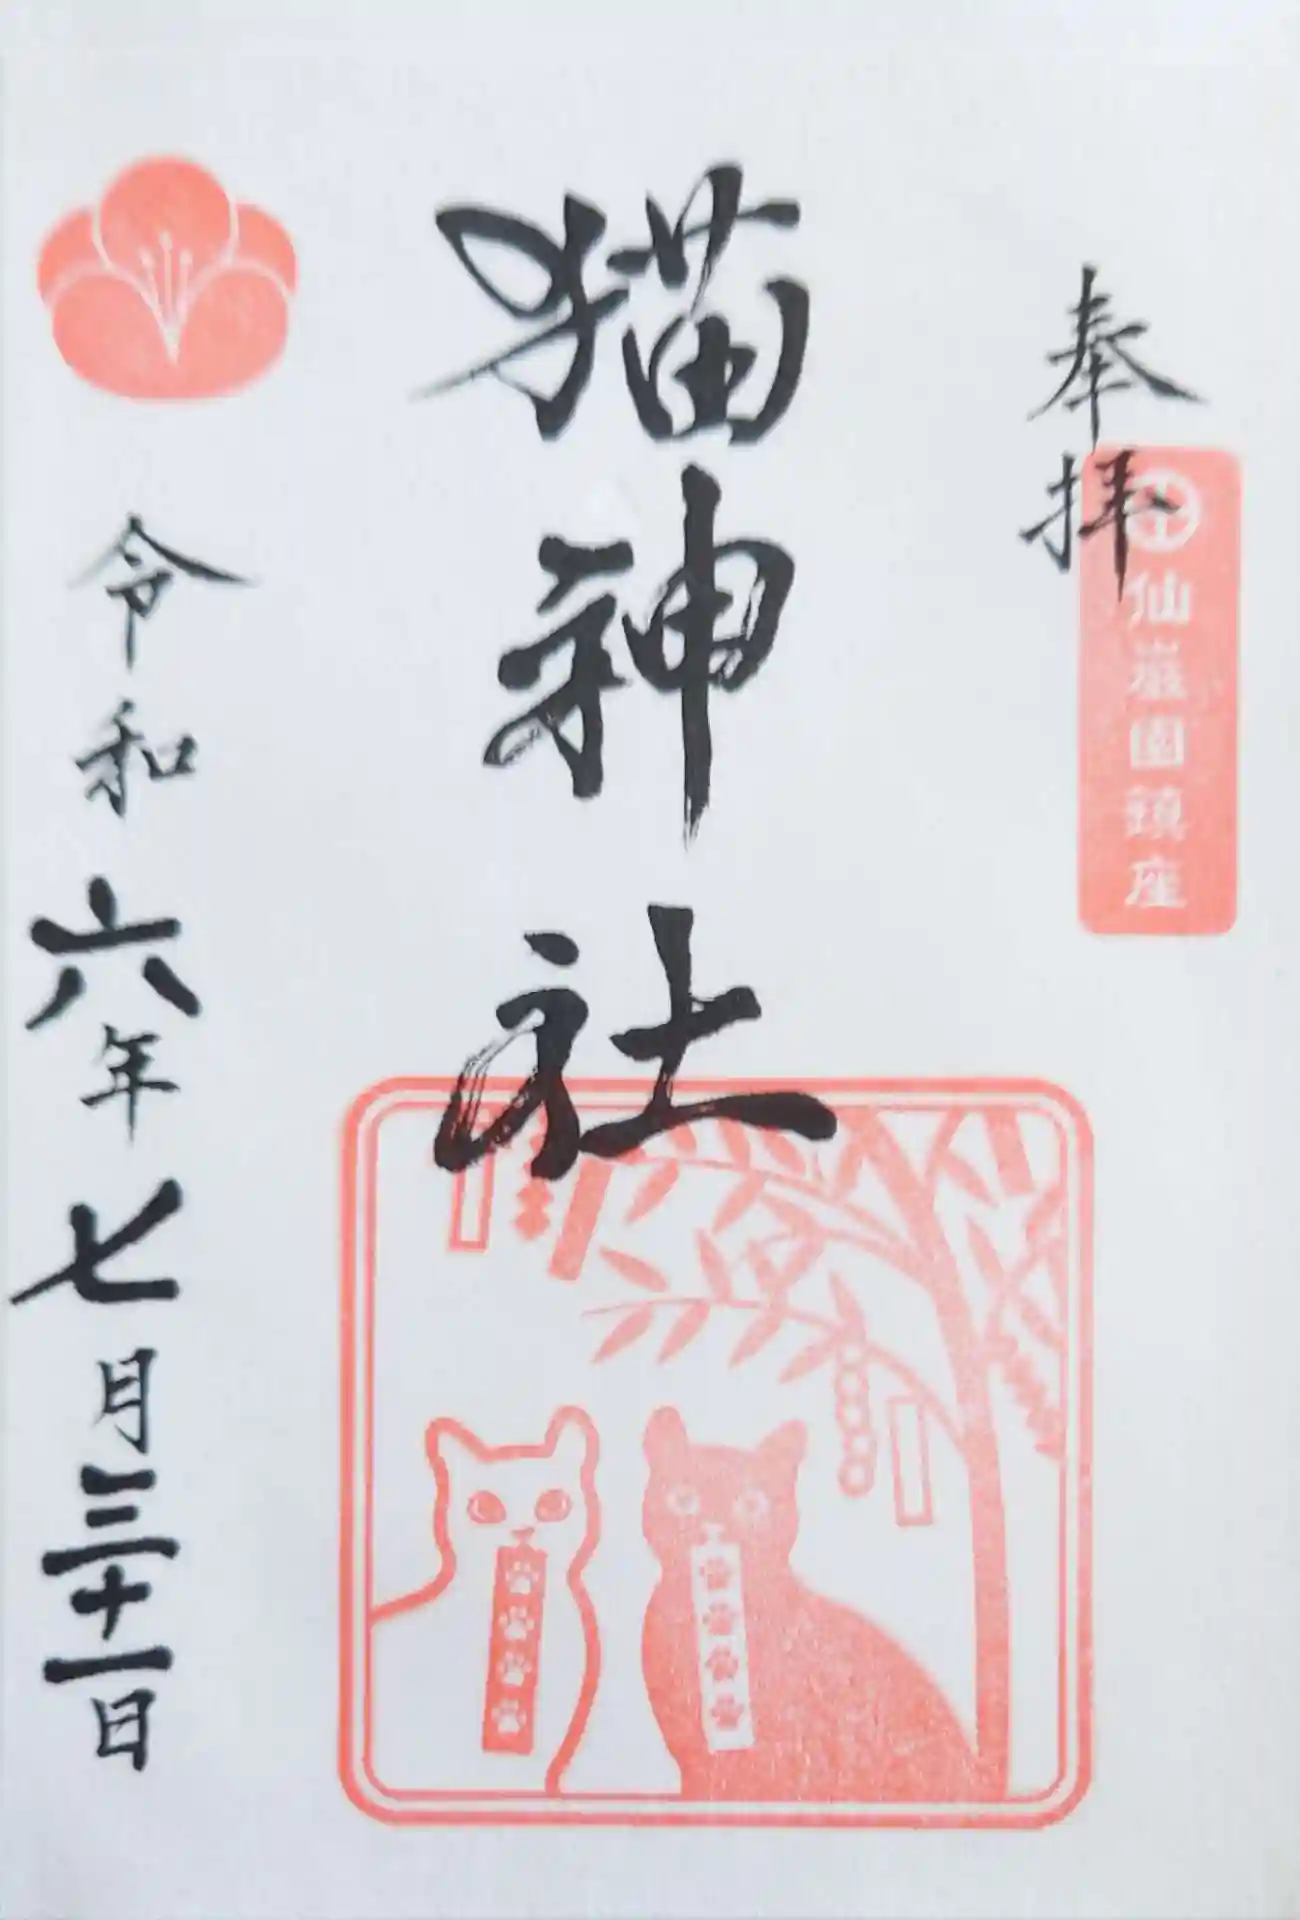 奉拝
仙巌園鎮座
猫神社
令和六年七月三十一日